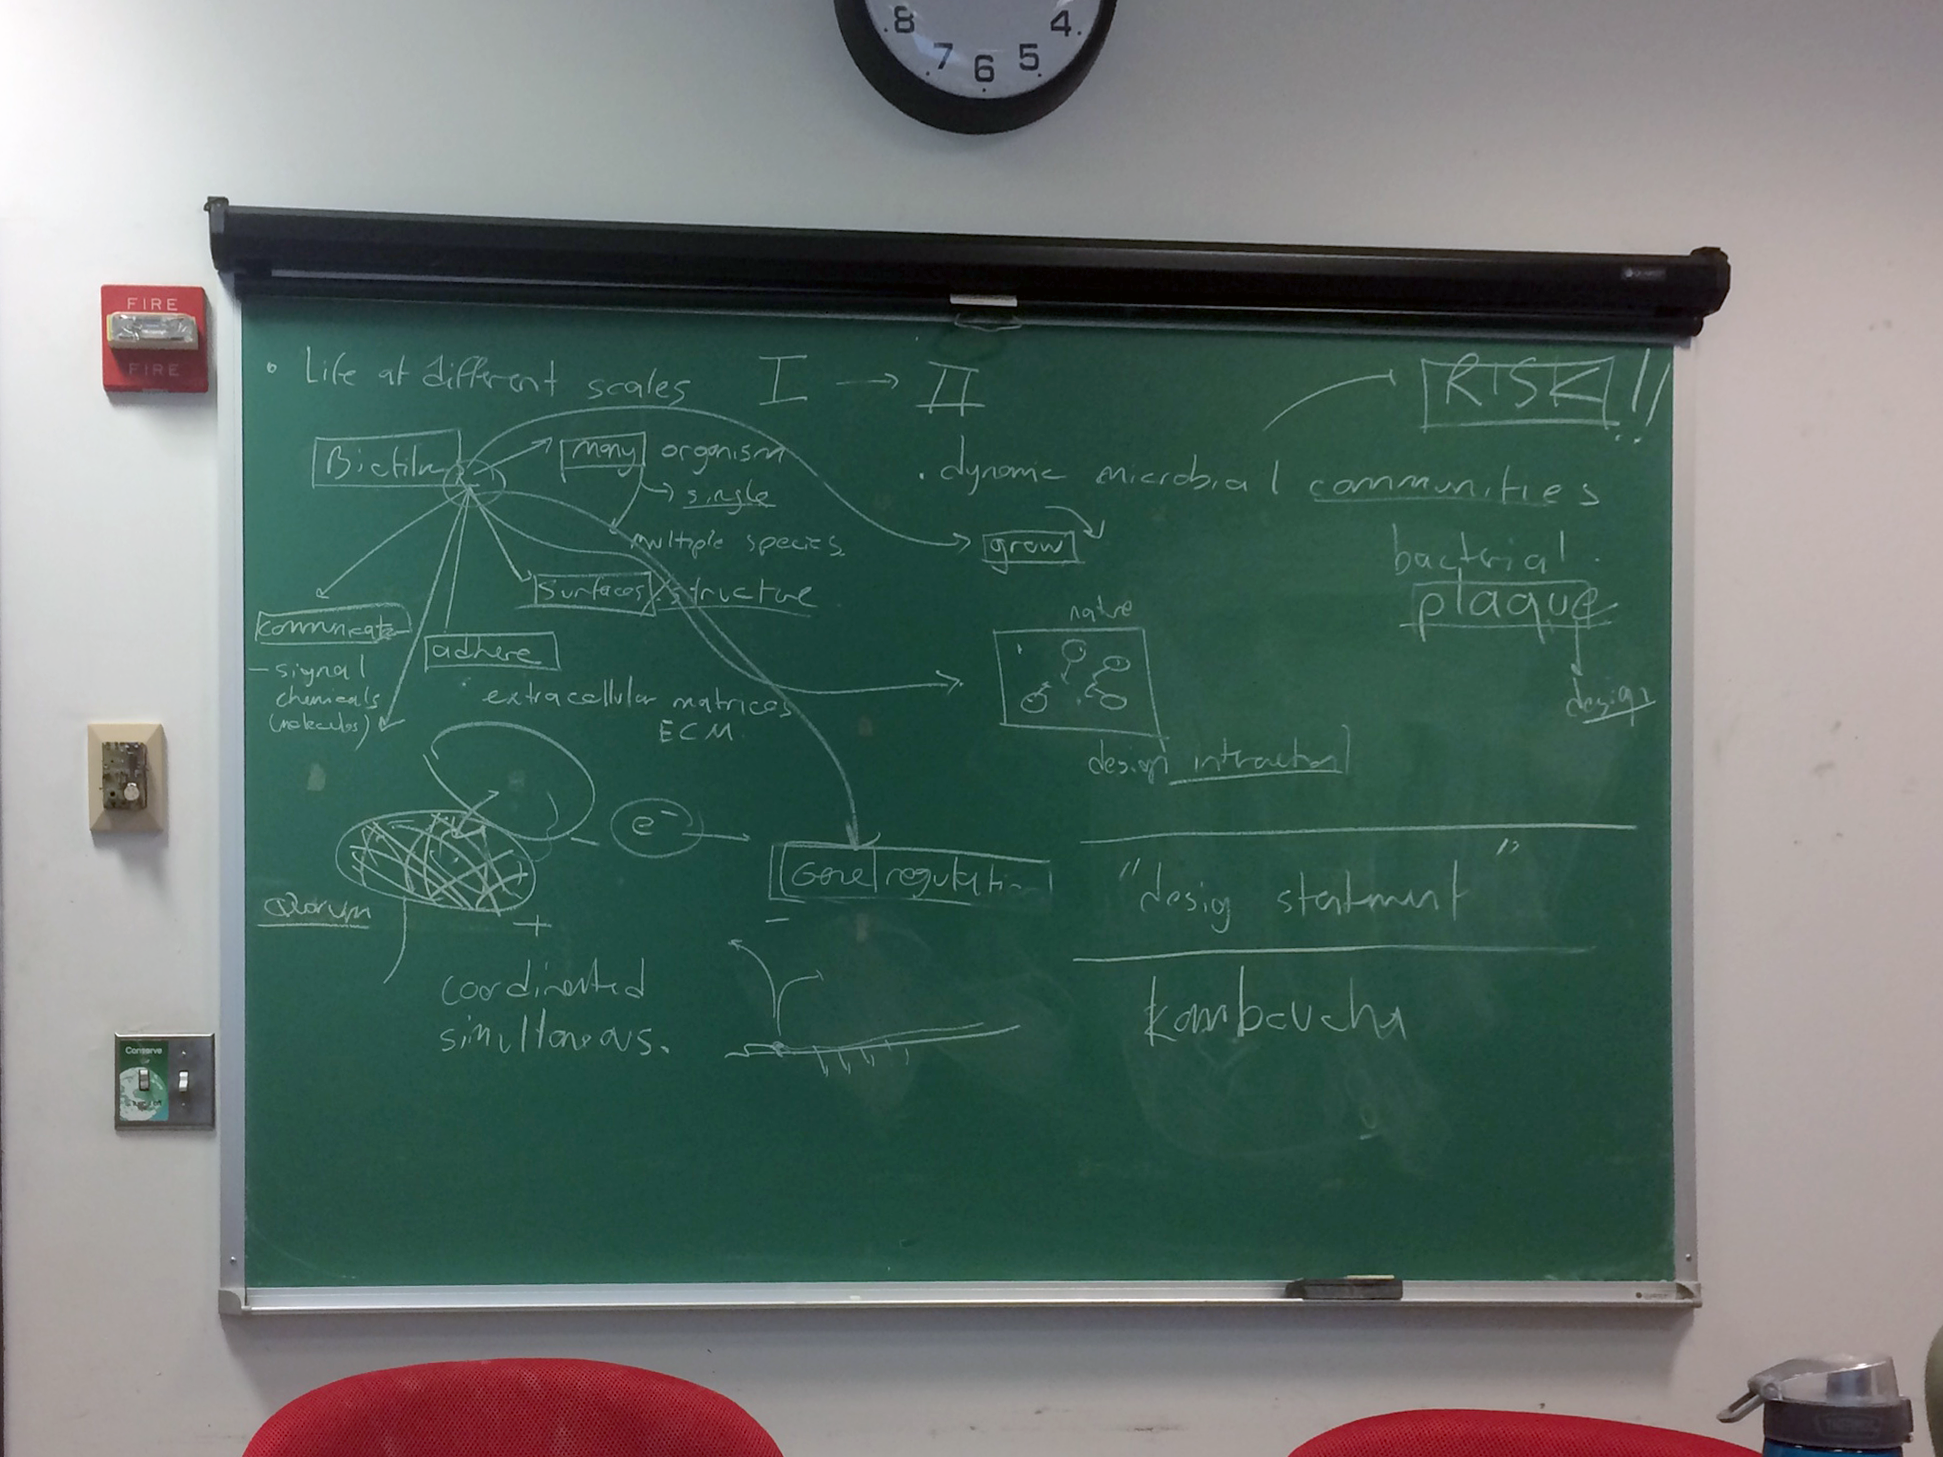 8 7 6 5 4
FIRE
FIRE
• Life at different scales I → II
RISK!!
Biofilm
many organism
single
multiple species.
• dynamic microbial communities
grow
bacterial
plaque
design
surfaces / structure
communicate
- signal
chemicals
(molecules)
adhere
extracellular matrices
ECM
nature
design interaction
e-
Gene regulation
-
"design statment"
Quorum
+
coordinated
simultaneous.
kombucha
Conserve